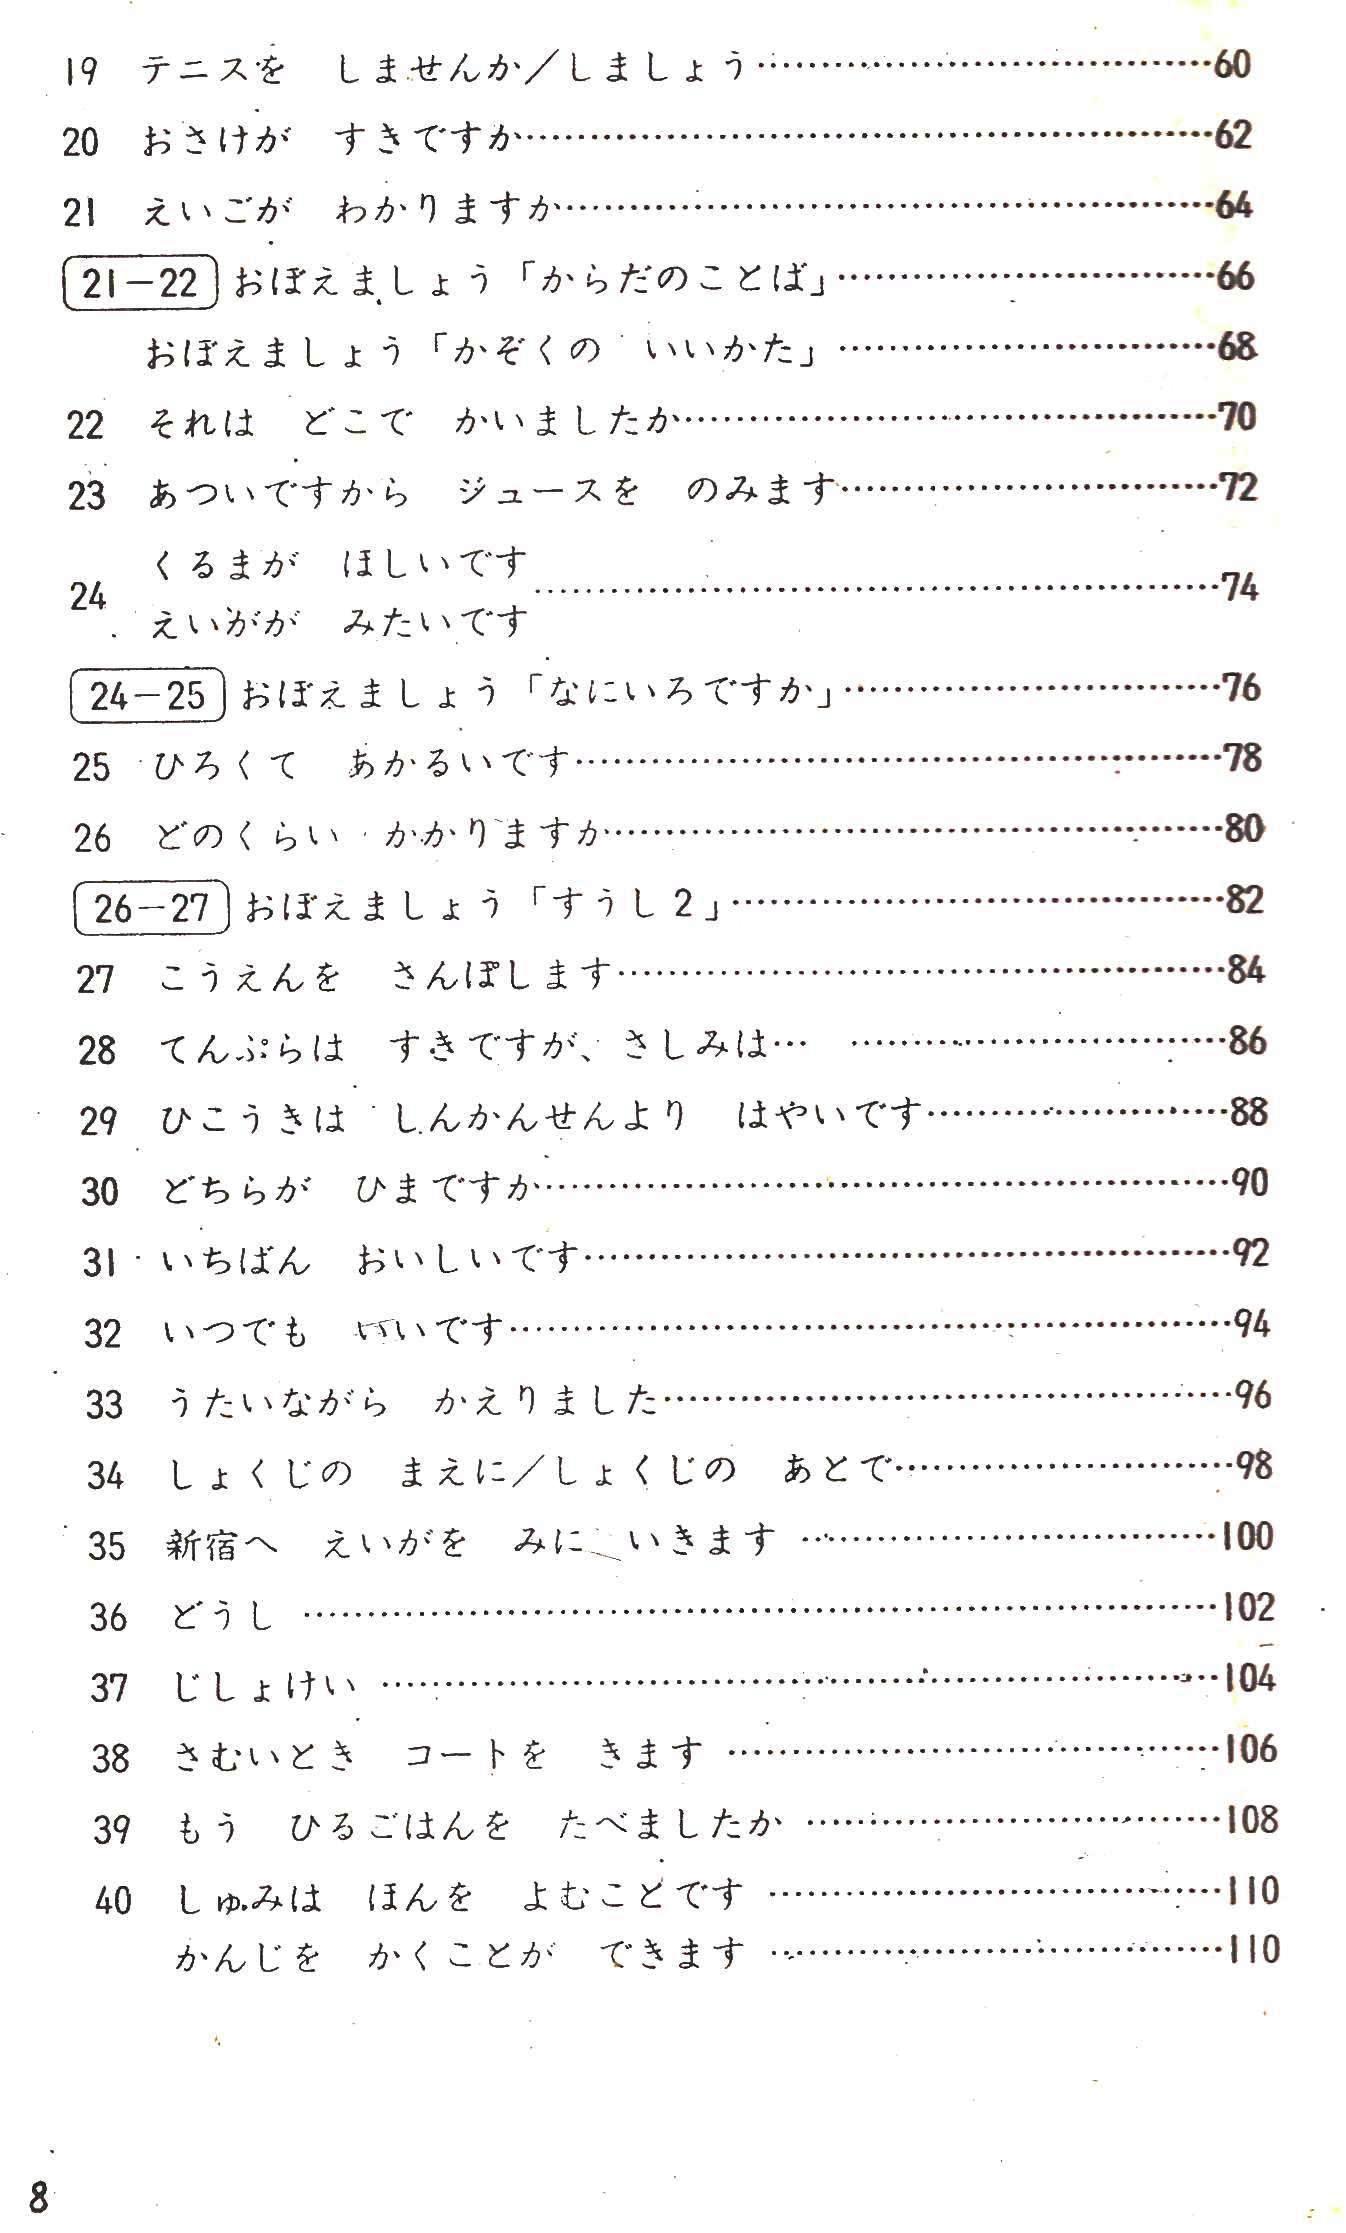 19 テニスを しませんか/しましょう……60
20 おさけが すきですか……62
21 えいごが わかりますか……64
21-22 おぼえましょう「からだのことば」……66
おぼえましょう「かぞくの いいかた」……68
22 それは どこで かいましたか……70
23 あついですから ジュースを のみます……72
くるまが ほしいです
24 ……74
えいがが みたいです
24-25 おぼえましょう「なにいろですか」……76
25 ひろくて あかるいです……78
26 どのくらい かかりますか……80
26-27 おぼえましょう「すうし2」……82
27 こうえんを さんぽします……84
28 てんぷらは すきですが、さしみは… ……86
29 ひこうきは しんかんせんより はやいです……88
30 どちらが ひまですか……90
31 いちばん おいしいです……92
32 いつでも いいです……94
33 うたいながら かえりました……96
34 しょくじの まえに/しょくじの あとで……98
35 新宿へ えいがを みに いきます……100
36 どうし……102
37 じしょけい……104
38 さむいとき コートを きます……106
39 もう ひるごはんを たべましたか……108
40 しゅみは ほんを よむことです……110
かんじを かくことが できます……110
8